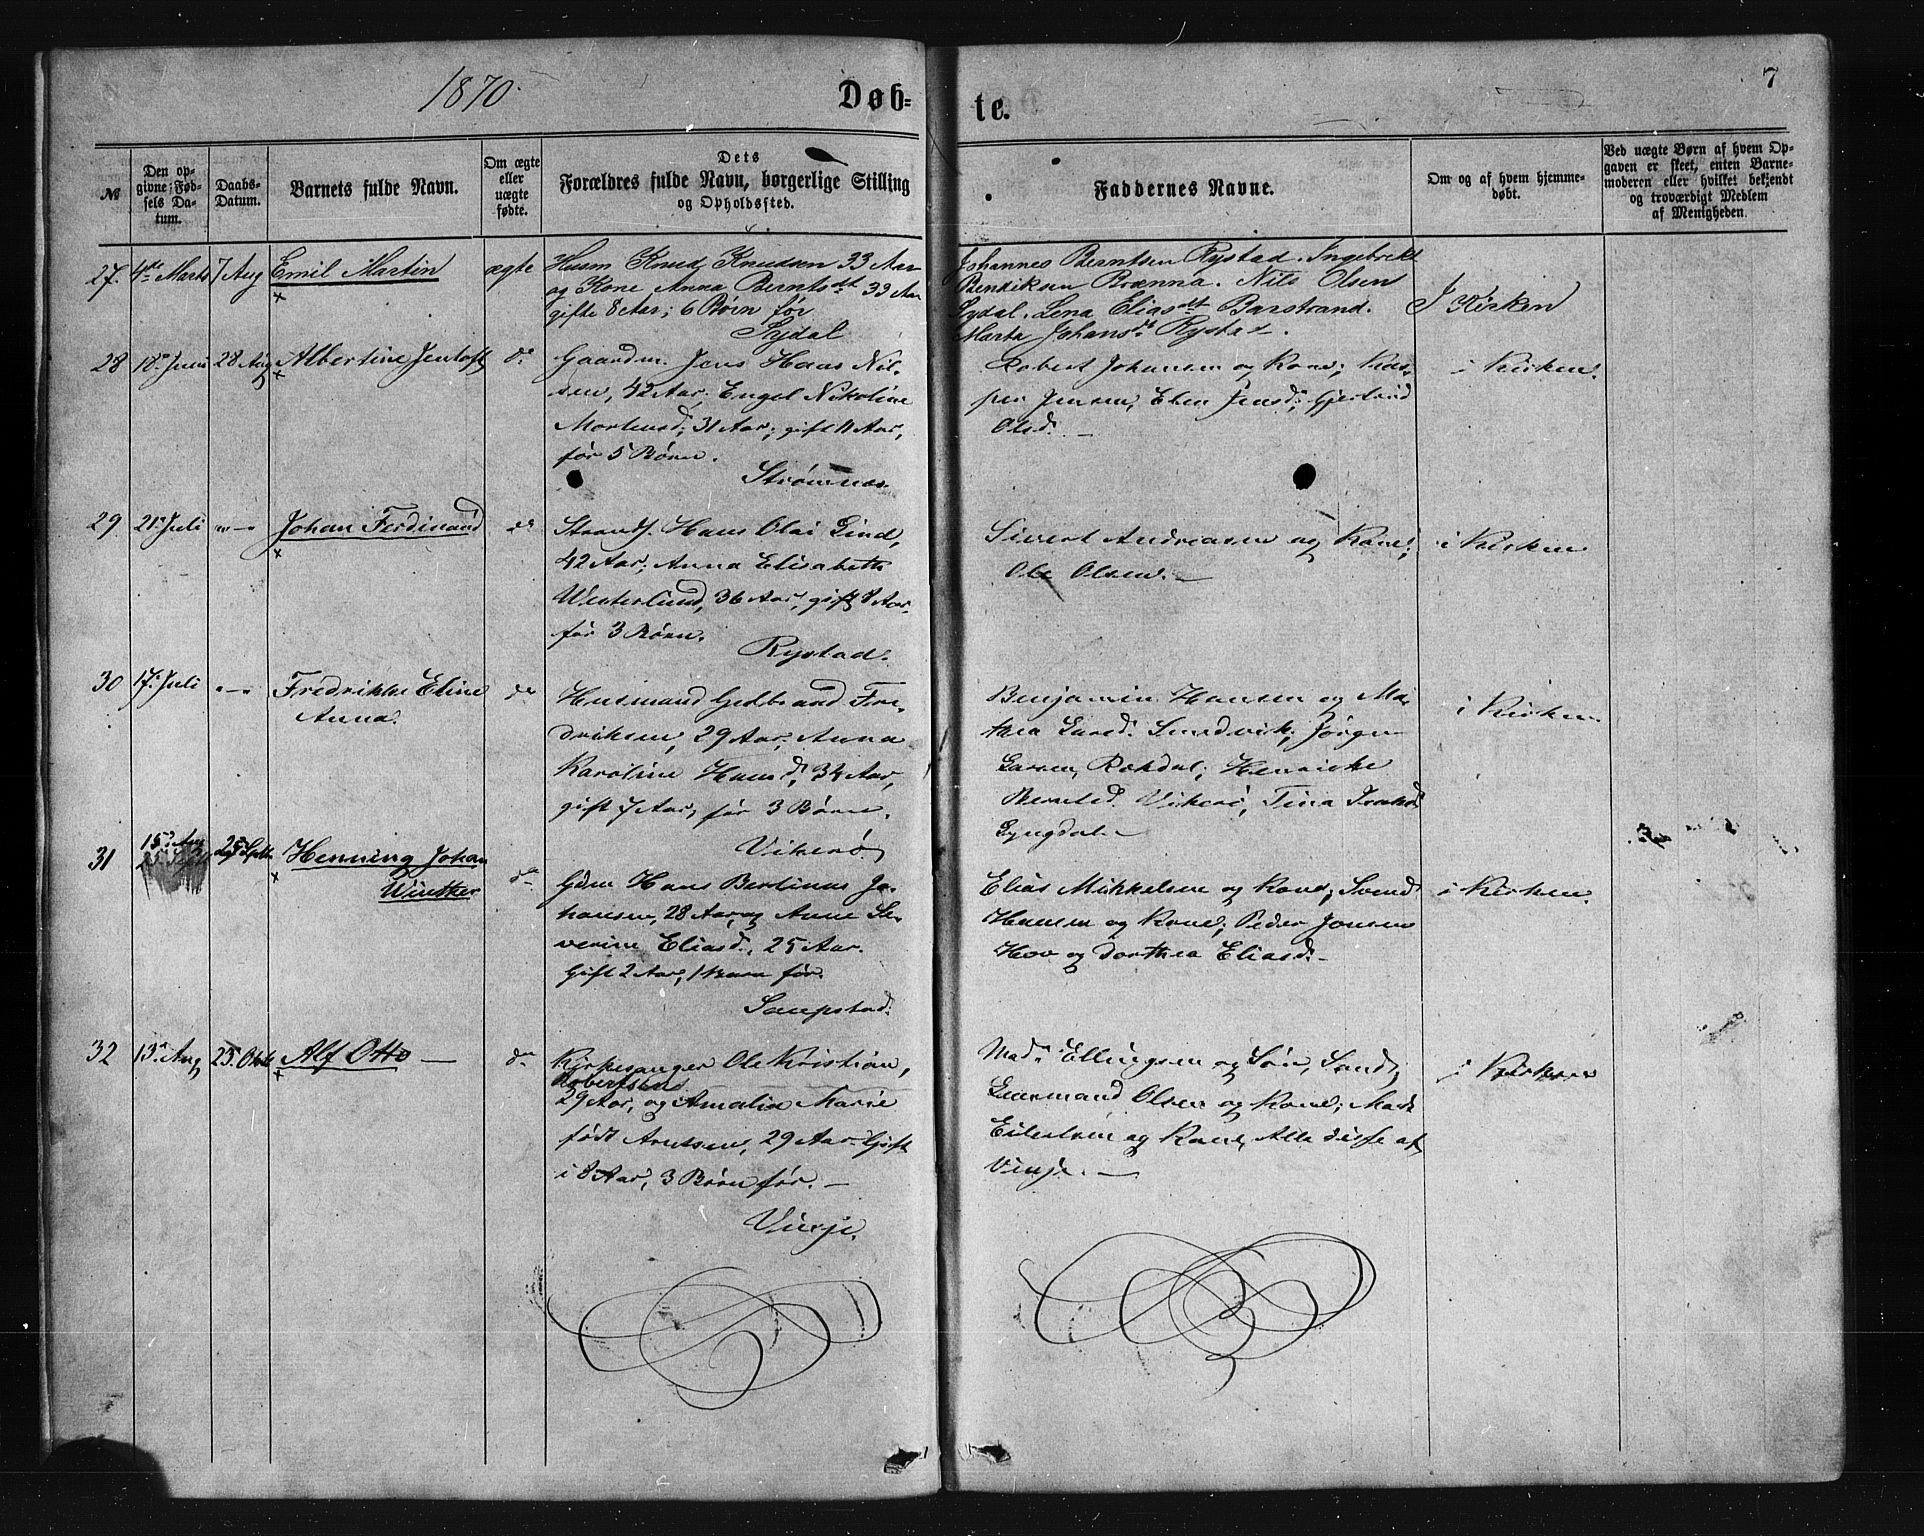 1870.
Døb-
te.
7
№
Den opgivne Fødsels Datum.
Daabs-Datum.
Barnets fulde Navn.
Om ægte eller uægte fødte.
Dets Forældres fulde Navn, borgerlige Stilling og Opholdssted.
Faddernes Navne.
Om og af hvem hjemmedøbt.
Ved uægte Børn af hvem Opgaven er skeet, enten Barnemoderen eller hvilket bekjendt og troværdigt Medlem af Menigheden.
27. 4de Marts 7 Aug Emil Martin ægte
Husm Knud Knudsen 33 Aar
og Kone Anna Berntsdt 33 Aar
gifte 8 Aar; 6 Børn før
Sydal
Johannes Berntsen Rystad. Ingebrikt
Bendiksen Brænna. Nils Olsen
Sydal. Lena Eliasdt Barstrand.
Marta Johansdt Rystad.
I Kirken
28 18. Juni 28 Aug Albertine Jentoft do
Gaardm. Jens Haas Nil-
sen, 42 Aar; Engel Nikoline
Mortensd; 31 Aar; gift 11 Aar,
før 5 Børn.
Strømnes.
Robert Johansen og Kone; Kas-
per Jensen, Elen Jensd; Gjertrud
Olsd. —
i Kirken.
29 21. Juli — Johan Ferdinand do
Strands. Hans Olai Lind,
42 Aar; Anna Elisabeth
Westerlund, 36 Aar, gift 8 Aar,
før 3 Børn.
Rystad.
Sivert Andreasen og Kone;
Ole Olsen. —
i Kirken
30 17. Juli — Fredrikke Eline
Anna. do
Husmand Gulbrand Fre-
driksen, 29 Aar, Anna
Karoline Hansd, 34 Aar,
gift 7 Aar, før 3 Børn.
Vikerø
Benjamin Hansen og Ma-
thea Larsd. Sundsvik; Jørgen
Larsen, Rokdal; Henrikke
Berntsd. Vikerø, Tina
Lyngdal
i Kirken
31 15. Aug 25 Septb Henning Johan
Winther do
Gdm Hans Bertinus Jo-
hansen, 28 Aar, og Anne Se-
verine Eliasd, 25 Aar.
Gift 2 Aar, 1 Barn før.
Saupstad.
Elias Mikkelsen og Kone; Svend
Hansen og Kone; Peder Jonsen
Hov og Dorthea Eliasd. —
i Kirken.
32 13. Aug 23. Oktb Alf Otto — do
Kirkesanger Ole Kristian,
Robertsen
29 Aar, og Amalia Marie
født Arntsen, 29 Aar. Gift
i 8 Aar, 3 Børn før. —
Vinje.
Mad. Ellingsen og Søn, Sand;
Lensmand Olsen og Kone;
Eilertsen og Kone, Alle disse af
Vinje. —
i Kirken